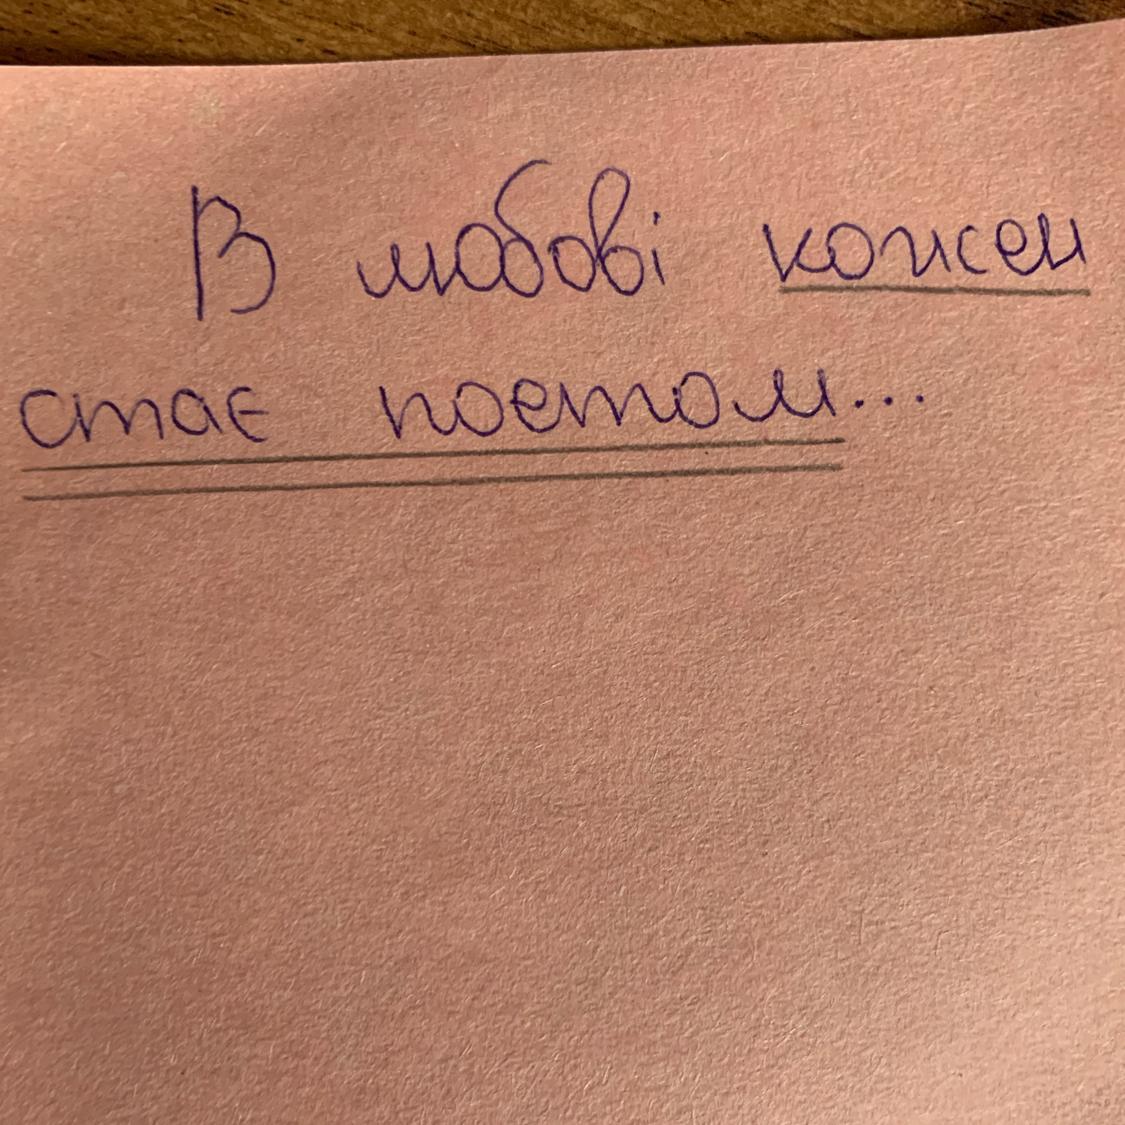 В любові кожен
стає поетом...